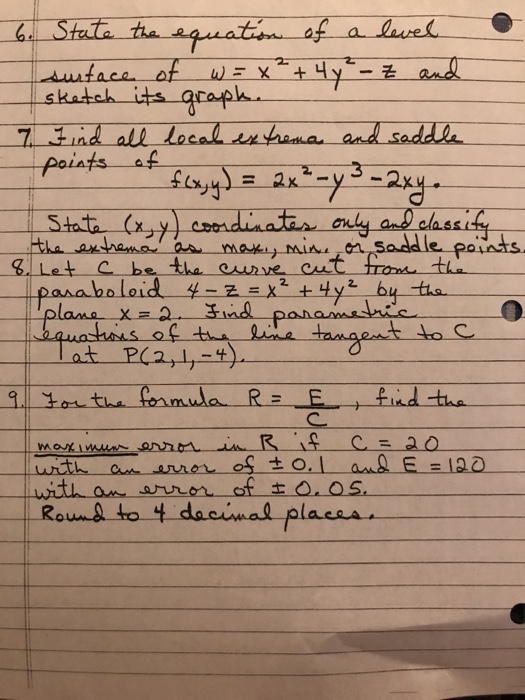 6. State the equation of a level
surface of w = x² + 4y² - z and
sketch its graph.
7. Find all local extrema and saddle
points of
f(x,y) = 2x² - y³ - 2xy.
State (x,y) coordinates only and classify
the extrema as max., min. or saddle points.
8. Let C be the curve cut from the
paraboloid 4 - z = x² + 4y² by the
plane x = 2. Find parametric
equations of the line tangent to C
at P(2, 1, -4).
9. For the formula R = E/C, find the
maximum error in R if C = 20
with an error of ± 0.1 and E = 120
with an error of ± 0.05.
Round to 4 decimal places.